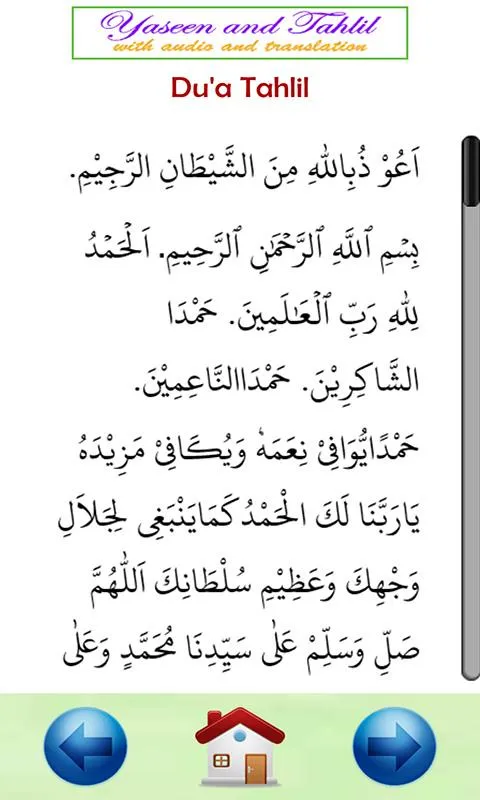 Yaseen and Tahlil
with audio and translation
Du'a Tahlil
اَعُوْ ذُبِاللهِ مِنَ الشَّيْطَانِ الرَّجِيْمِ.
بِسْمِ ٱللَّهِ ٱلرَّحْمَٰنِ ٱلرَّحِيمِ. اَلْحَمْدُ
لِلّٰهِ رَبِّ ٱلْعَـٰلَمِينَ. حَمْدَا
الشَّاكِرِيْنَ. حَمْدَاالنَّاعِمِيْنَ.
حَمْدًايُّوَافِيْ نِعَمَهٗ وَيُكَافِيْ مَزِيْدَهُ
يَارَبَّنَا لَكَ الْحَمْدُ كَمَايَنْبَغِى لِجَلاَلِ
وَجْهِكَ وَعَظِيْمِ سُلْطَانِكَ اَللّٰهُمَّ
صَلِّ وَسَلِّمْ عَلٰى سَيِّدِنَا مُحَمَّدٍ وَعَلٰى